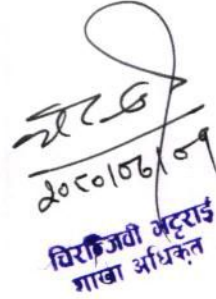 २०८०/०६/०१
चिरञ्जिवी भट्टराई
शाखा अधिकृत